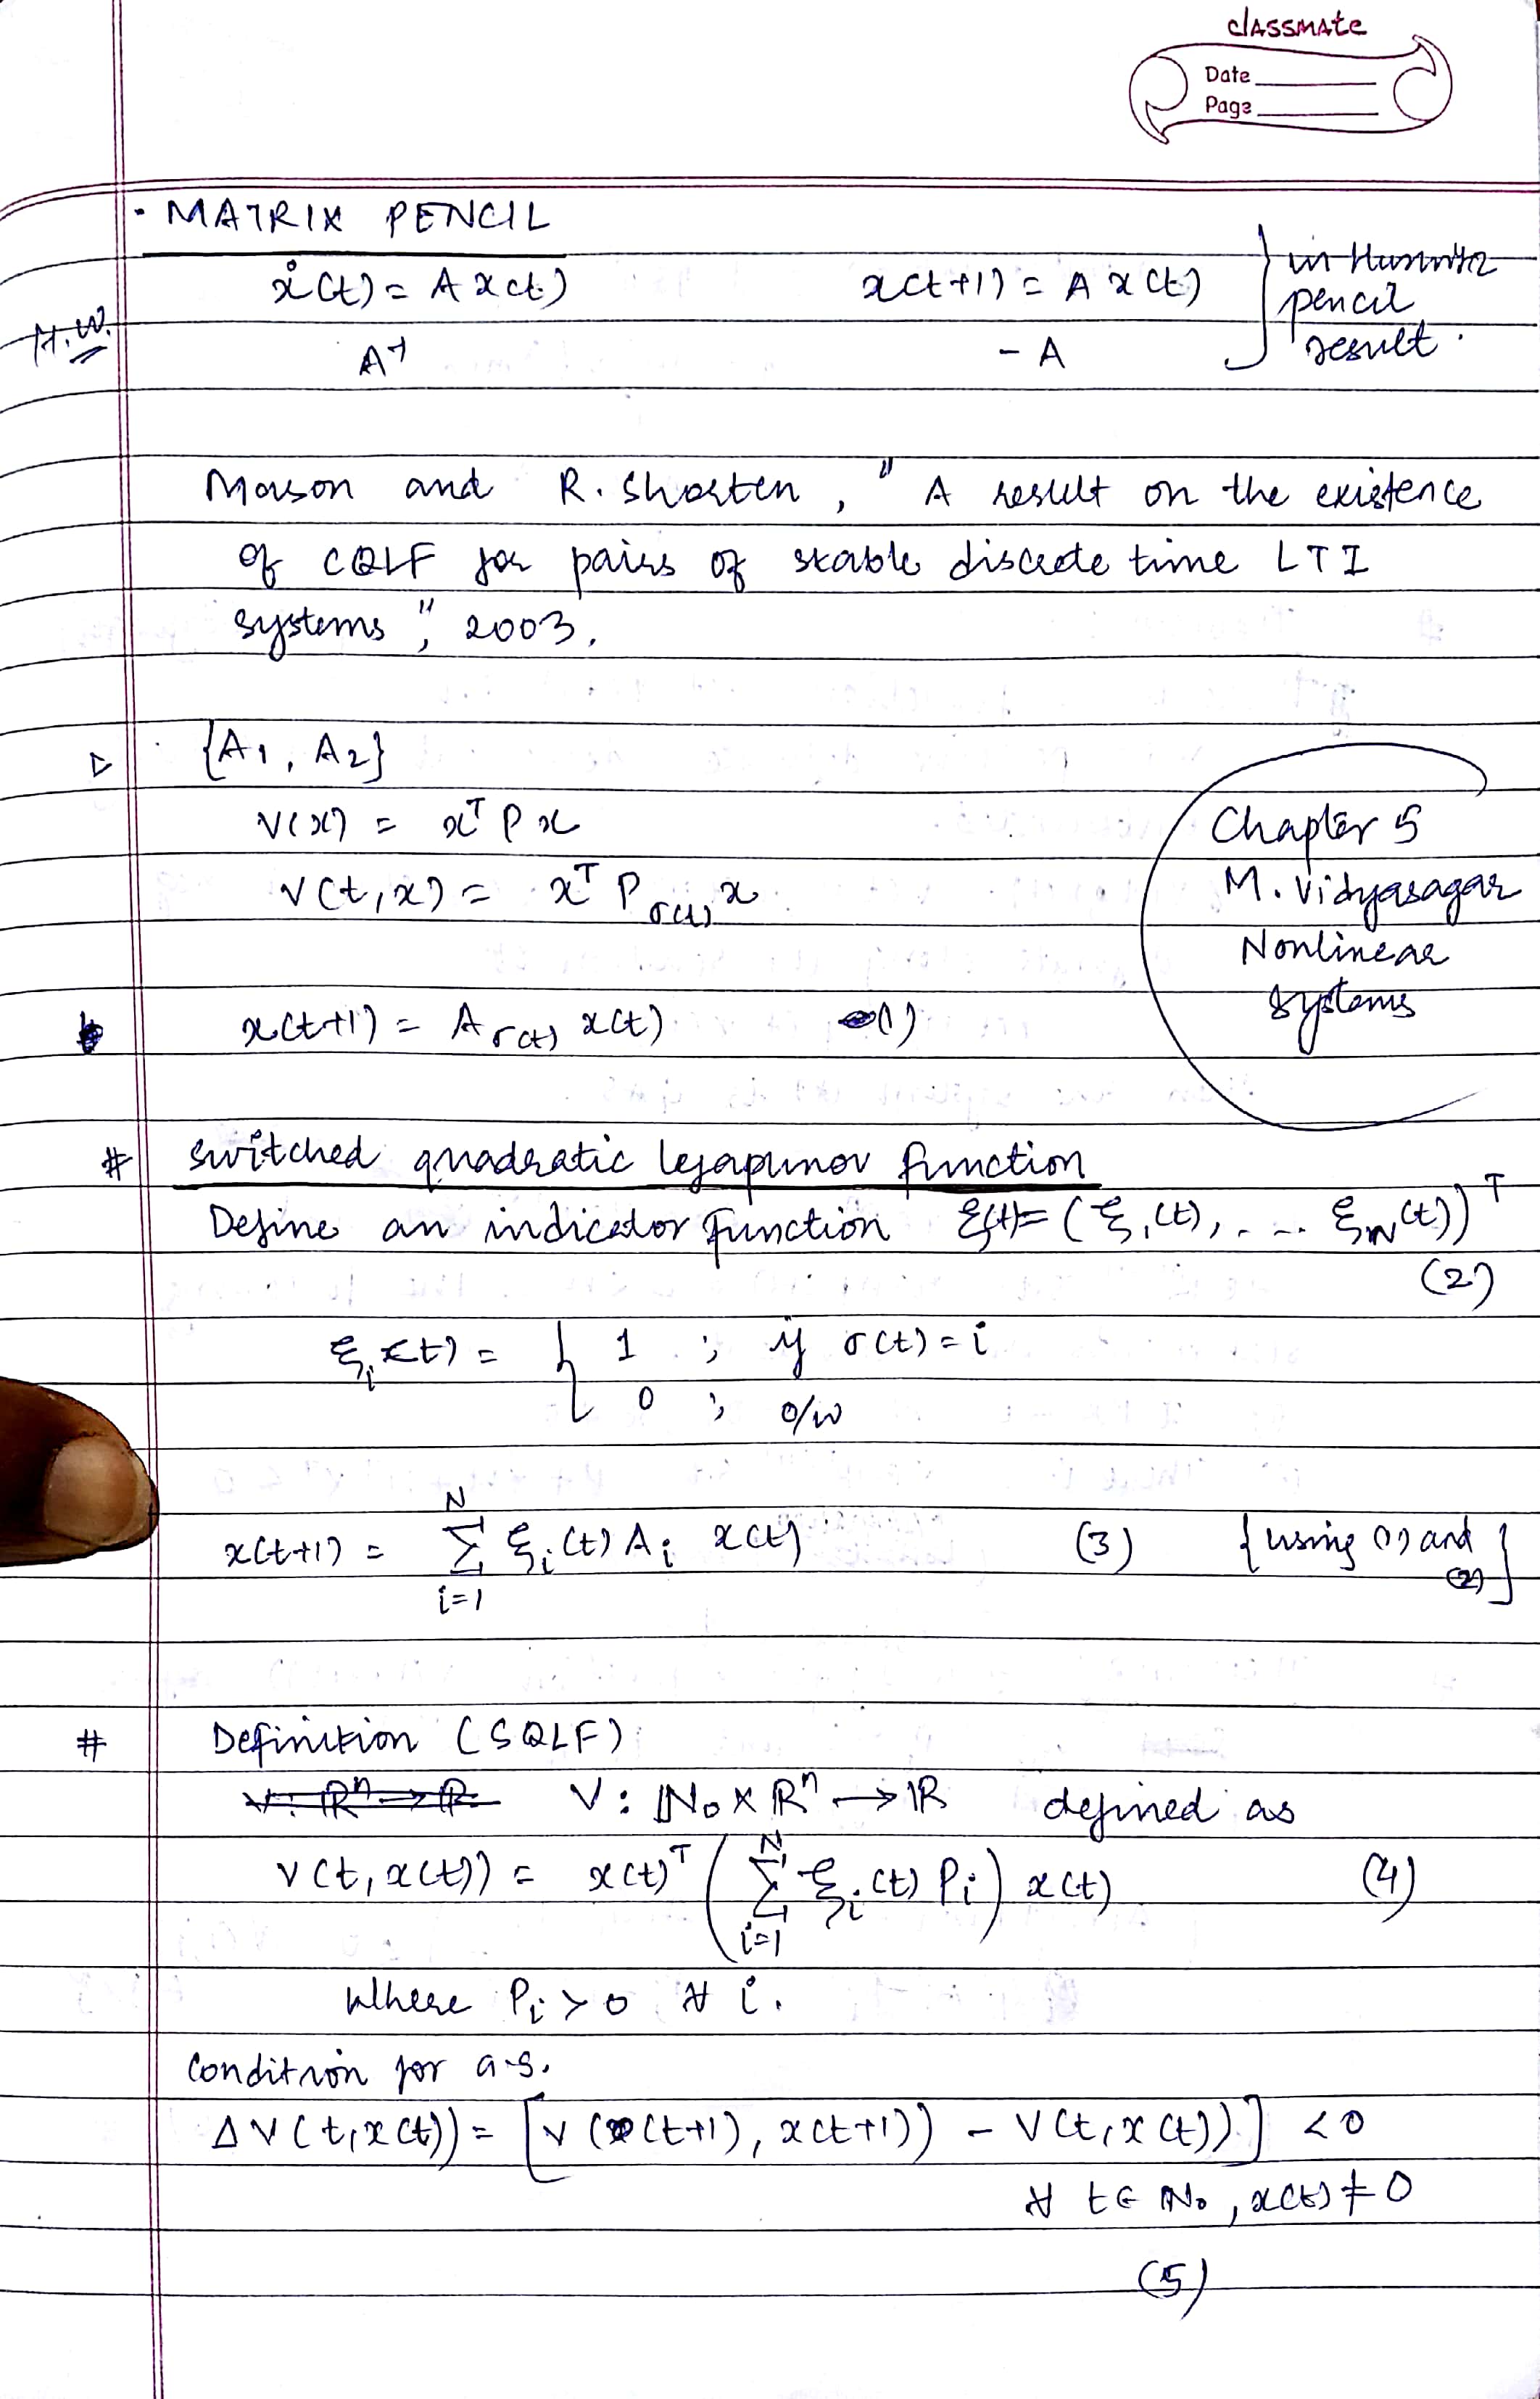 classmate
Date
Page
• MATRIX PENCIL
ẋ(t) = A x(t) x(t+1) = A x(t) } in Hurwitz
pencil
result.
H.W.
A⁻¹ - A
Mason and R. Shorten, " A result on the existence
of CQLF for pairs of stable discrete time LTI
systems", 2003.
▷ {A₁, A₂}
V(x) = xᵀ P x
V(t,x) = xᵀ P_σ(t) x
Chapter 5
M. Vidyasagar
Nonlinear
Systems
x(t+1) = A_σ(t) x(t) (1)
# Switched quadratic lyapunov function
Define an indicator function ξ(t) = (ξ₁(t), .... ξ_N(t))ᵀ
(2)
ξᵢ(t) = { 1 ; if σ(t) = i
0 ; o/w
x(t+1) = Σ_{i=1}^{N} ξᵢ(t) Aᵢ x(t) (3) {using (1) and (2)}
# Definition (SQLF)
V: ℝⁿ → ℝ V: ℕ₀ × ℝⁿ → ℝ defined as
V(t, x(t)) = x(t)ᵀ ( Σ_{i=1}^{N} ξᵢ(t) Pᵢ ) x(t) (4)
where Pᵢ > 0 ∀ i.
Condition for a.s.
ΔV(t, x(t)) = [V((t+1), x(t+1)) - V(t, x(t))] < 0
∀ t ∈ ℕ₀, x(t) ≠ 0
(5)